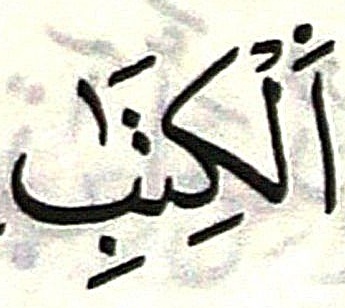 اَلْكِتٰبِ